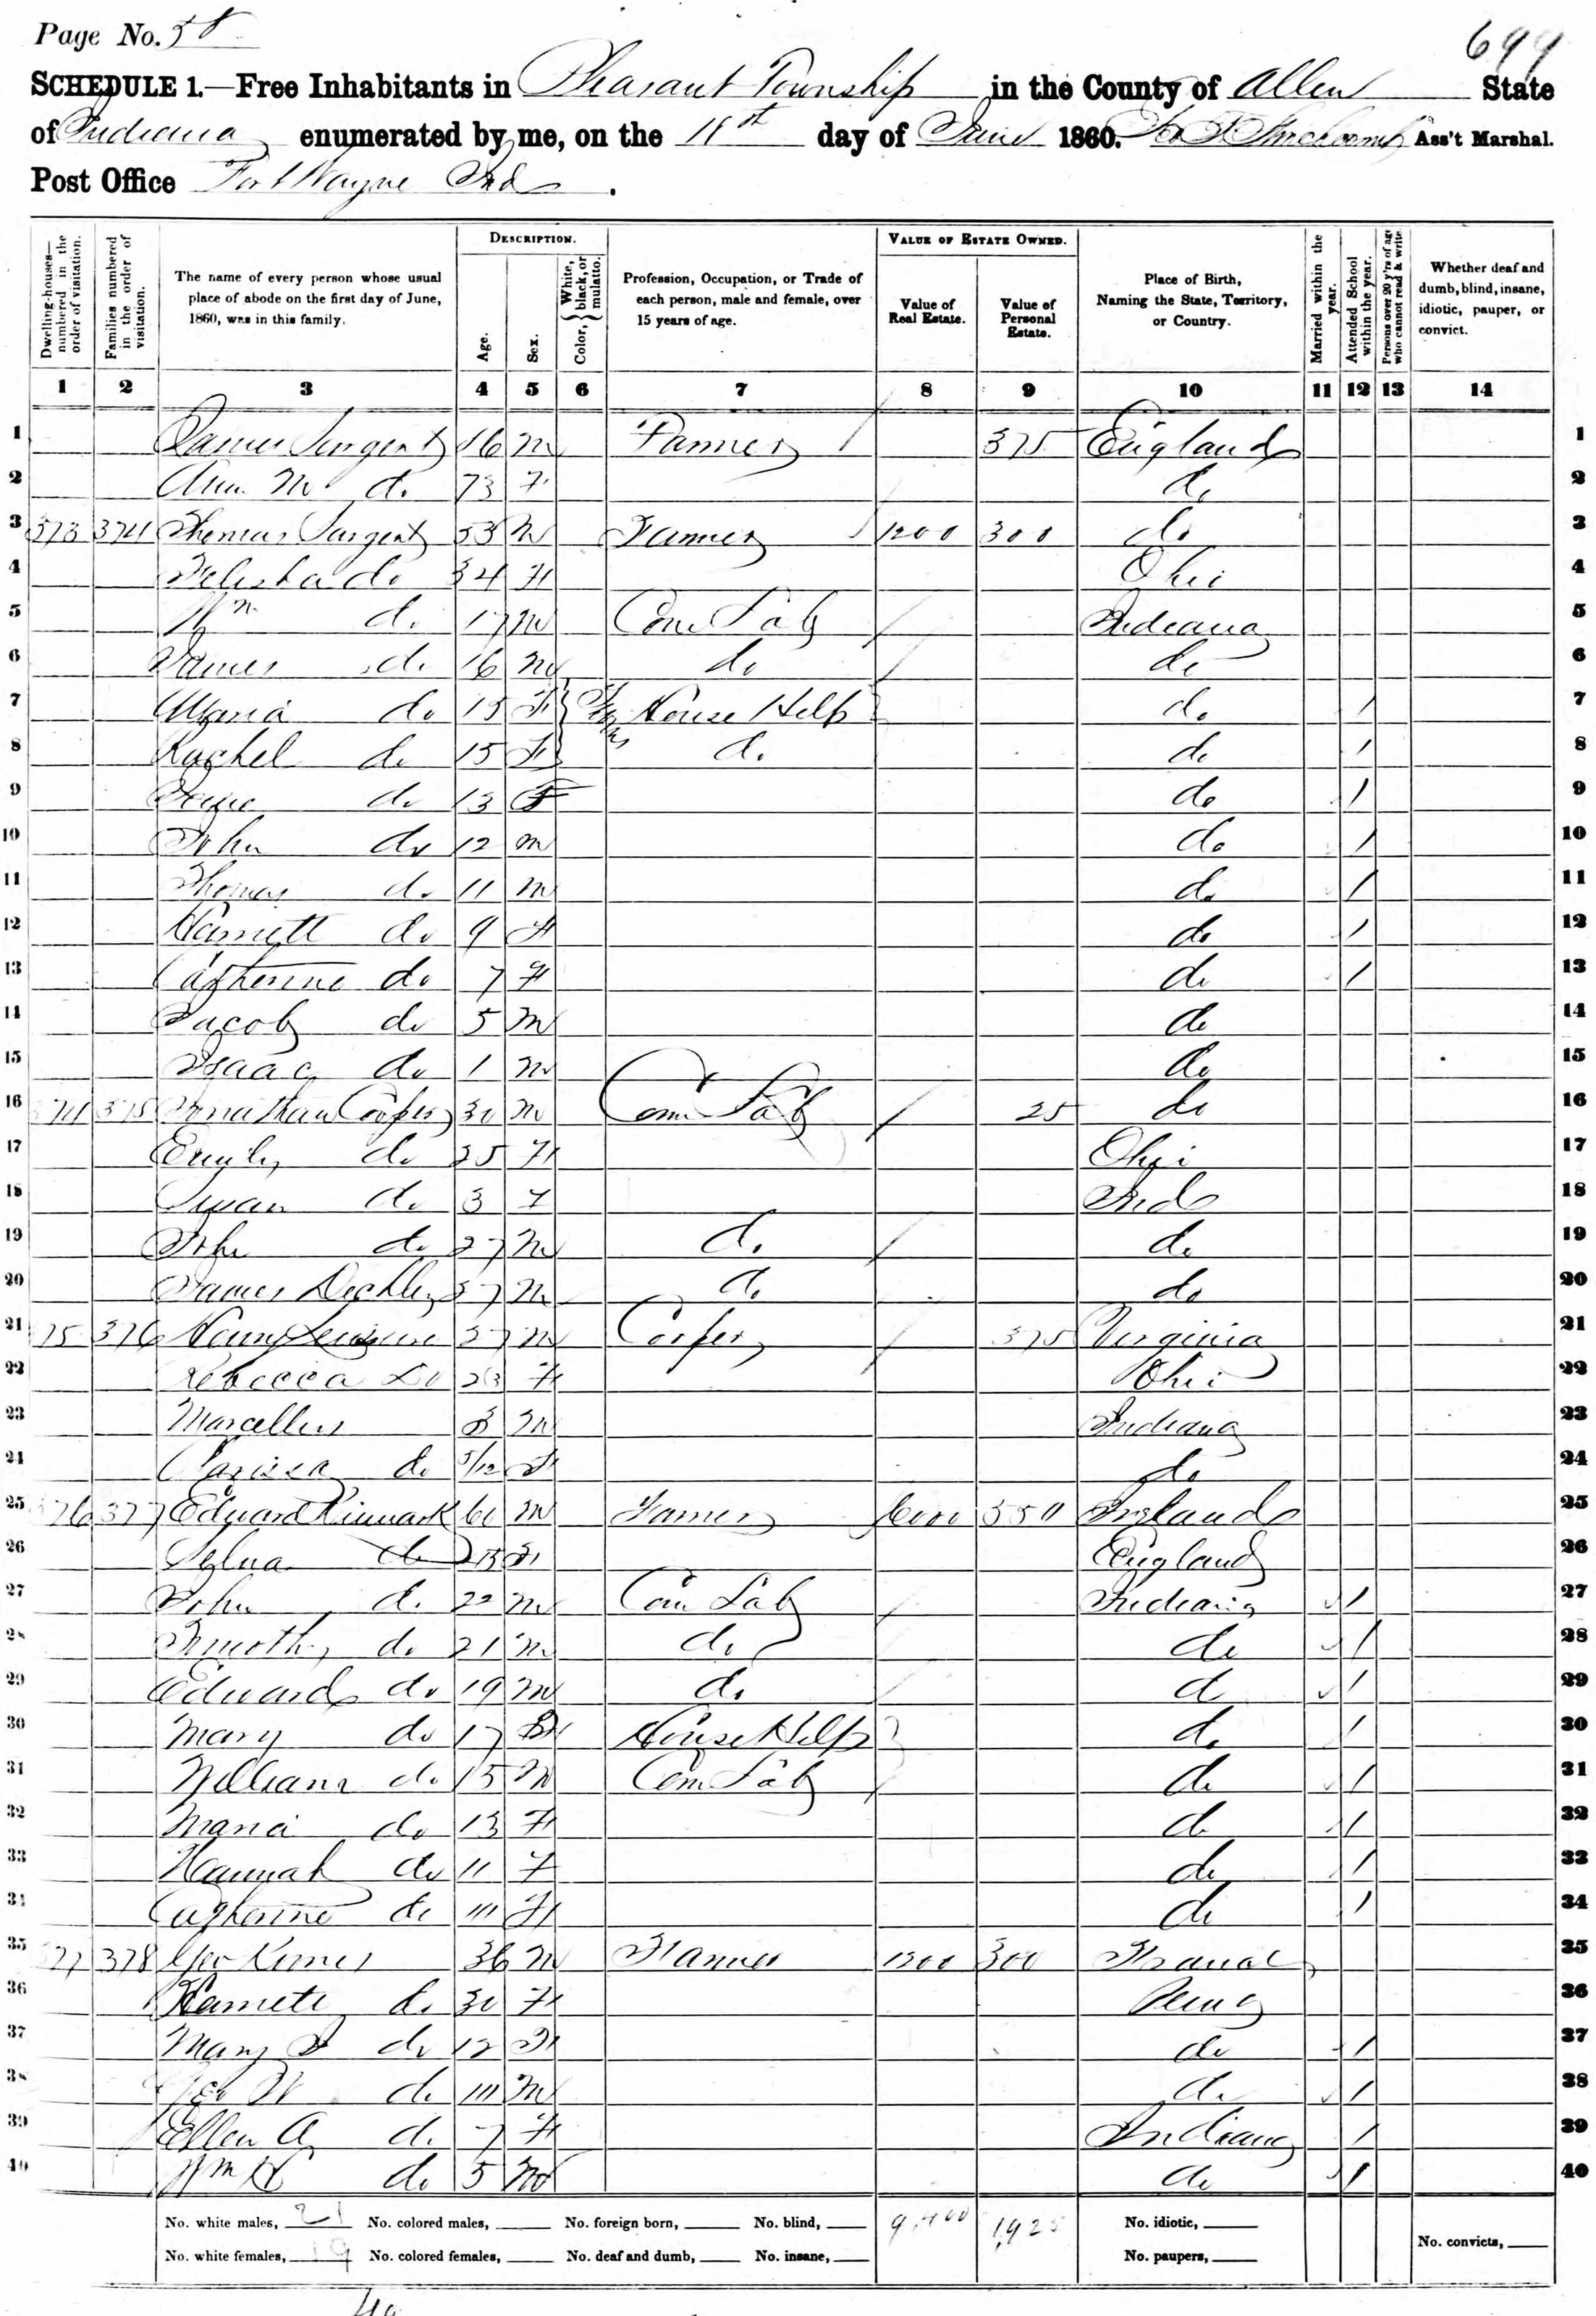 Page No. 58
699
SCHEDULE 1.—Free Inhabitants in Pleasant Township in the County of Allen State
of Indiana enumerated by me, on the 11th day of June 1860. Ass't Marshal.
Post Office Fort Wayne Ind.
Dwelling-houses—numbered in the order of visitation.
Families numbered in the order of visitation.
The name of every person whose usual place of abode on the first day of June, 1860, was in this family.
DESCRIPTION.
Age.
Sex.
Color, { White, black, or mulatto.
Profession, Occupation, or Trade of each person, male and female, over 15 years of age.
VALUE OF ESTATE OWNED.
Value of Real Estate.
Value of Personal Estate.
Place of Birth, Naming the State, Territory, or Country.
Married within the year.
Attended School within the year.
Persons over 20 y'rs of age who cannot read & write.
Whether deaf and dumb, blind, insane, idiotic, pauper, or convict.
1 2 3 4 5 6 7 8 9 10 11 12 13 14
1 James Sergent 76 M Farmer / 375 England 1
2 Ann M do 73 F do 2
3 373 374 Thomas Sargent 53 M Farmer / 1200 300 do 3
4 do 34 F Ohio 4
5 Wm do 17 M Com Lab / Indiana 5
6 James do 16 M do / do 6
7 Maria do 15 F House Help do / 7
8 Rachel do 15 F do do / 8
9 do 13 F do / 9
10 John do 12 M do / 10
11 Thomas do 11 M do / 11
12 Harriett do 9 F do / 12
13 Catherine do 7 F do / 13
14 Jacob do 5 M do 14
15 Isaac do 1 M do 15
16 374 375 Jonathan Cooper 30 M Com Lab / 25 do 16
17 Emily do 25 F Ohio 17
18 Susan do 3 F Ind 18
19 John do 27 M do / do 19
20 James 37 M do / do 20
21 75 376 Henry 27 M Cooper / 375 Virginia 21
22 Rebecca Do 23 F Ohio 22
23 Marcellus 3 M Indiana 23
24 Clarissa do 5/12 F do 24
25 376 377 Edward Kinnark 60 M Farmer 6000 550 England 25
26 do F England 26
27 John do 22 M Com Lab / Indiana / 27
28 Timothy do 21 M do do / 28
29 Edward do 19 M do / do / 29
30 Mary do 17 F House Help do / 30
31 William do 15 M Com Lab / do / 31
32 Maria do 13 F do / 32
33 Hannah do 11 F do / 33
34 Catherine do 10 F do / 34
35 77 378 Geo 36 M Farmer 1200 300 35
36 Harriett do 30 F Penn 36
37 Mary do 12 F do / 37
38 Geo W do 10 M do / 38
39 Ellen A do 7 F Indiana / 39
40 Wm H do 5 M do / 40
No. white males, 21 No. colored males, No. foreign born, No. blind, 9,400 1,925 No. idiotic,
No. white females, 19 No. colored females, No. deaf and dumb, No. insane, No. paupers, No. convicts,
40